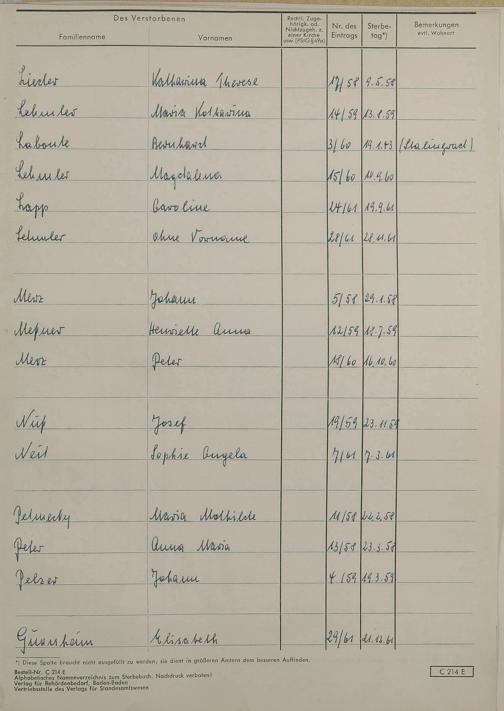 Des Verstorbenen
Familienname Vornamen
Rechtl. Zuge-
hörigk. od.
Nichtzugeh. z.
einer Kirche
usw. (PStG §
Nr. des
Eintrags
Sterbe-
tag*)
Bemerkungen
evtl. Wohnort
Katharina Therese 17/58 9.5.58
Lehmler Maria Katharina 14/59 13.8.59
Labonte Bernhard 3/60 19.1.43 (Stalingrad)
Lehmler Magdalena 15/60
Lapp Caroline 24/61 19.9.61
Lehmler ohne Vorname 28/61 28.11.61
Merz Johann 5/58 29.1.58
Meßner Henriette Anna 12/59
Merz Peter 16.10.60
Nuß Josef 19/59 23.11.59
Neit Sophie Angela 7/61 7.3.61
Maria Mathilde 11/58
Peter Anna Maria 13/58 23.3.58
Pelzer Johann 4/59 19.3.59
Elisabeth 29/61 21.12.61
*) Diese Spalte braucht nicht ausgefüllt zu werden, sie dient in größeren Ämtern dem besseren Auffinden.
Bestell-Nr. C 214 E
Alphabetisches Namenverzeichnis zum Sterbebuch. Nachdruck verboten!
Verlag für Behördenbedarf, Baden-Baden
Vertriebsstelle des Verlags für Standesamtswesen
C 214 E